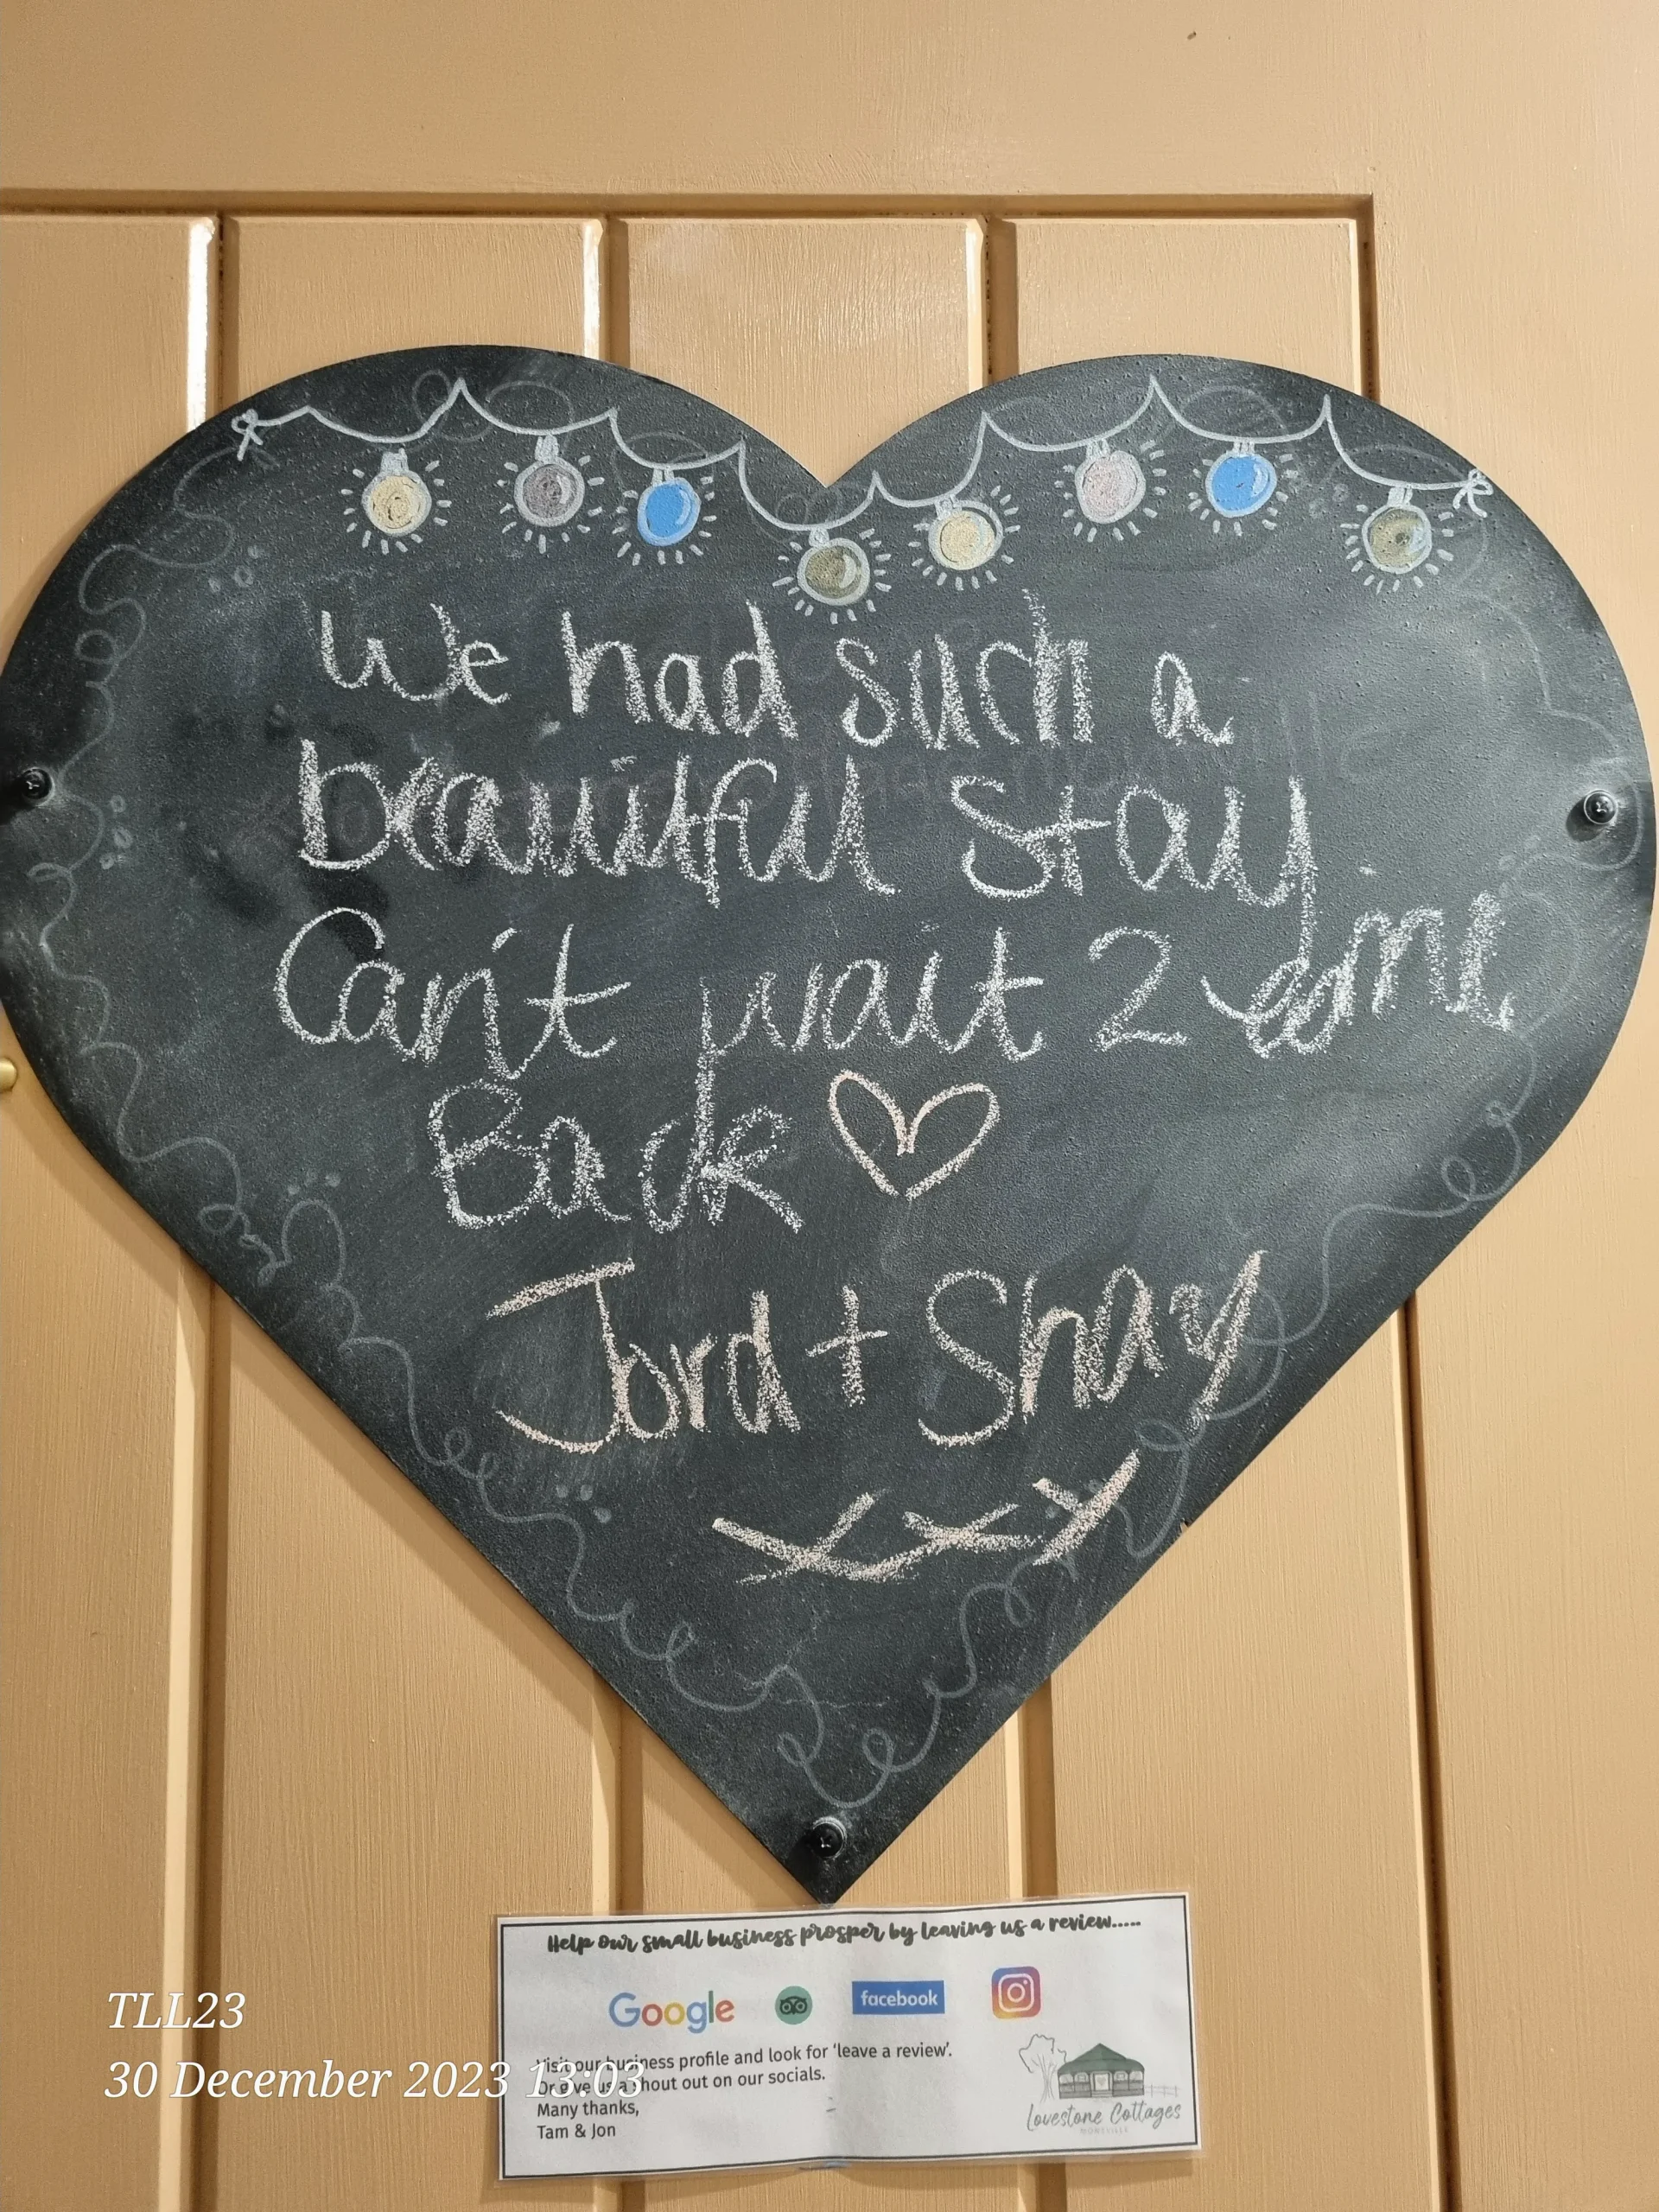 We had such a
beautiful stay
Can't wait 2 come
Back
Jord + Shay
xxx
Help our small business prosper by leaving us a review.....
Google
facebook
Visit our business profile and look for 'leave a review'.
Or give us a shout out on our socials.
Many thanks,
Tam & Jon
Lovestone Cottages
MONTVILLE
TLL23
30 December 2023 13:03